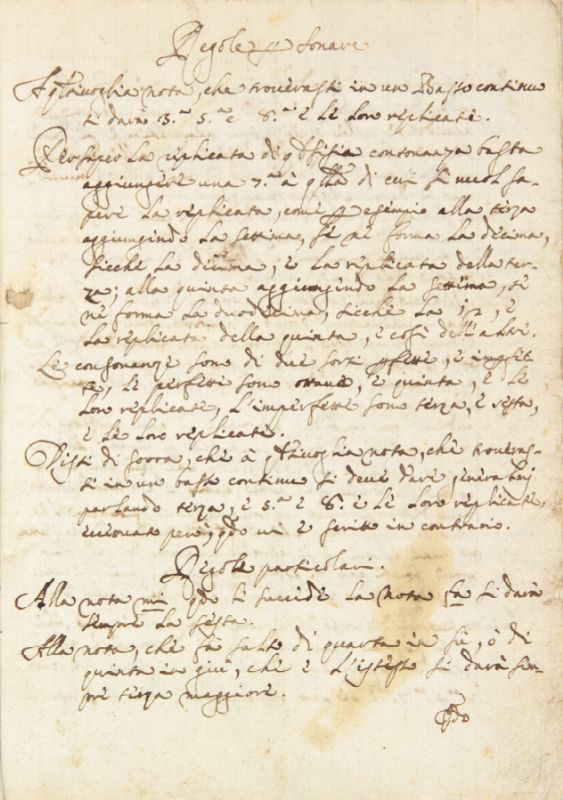 Regole p sonare
A qlsivoglia nota, che troverasti in un Basso continuo
si darà 3.a 5.a e 8.a e le loro replicate.
Per saper la replicata di qlsisia consonanza basta
aggiungere una 7.a à qlla di cui si vuol sa-
pere la replicata, come p esempio alla terza
aggiungendo la settima, se ne forma la decima,
sicche la decima, è la replicata della ter-
za; alla quinta aggiungendo la settima, se
ne forma la duodecima, sicche la 12, è
la replicata della quinta, e così dell'altre.
Le consonanze sono di due sorti pfette, e impfet
te, le perfette sono ottava, e quinta, e le
loro replicate, l'imperfette sono terza, e sesta,
e le loro replicate.
Dissi di sopra, che à qlsivoglia nota, che troveras-
ti in un basso continuo si deve dare, generalmte
parlando terza, e 5.a e 8.a e le loro replicate,
eccetuato però, qdo vi è scritto in contrario.
Regole particolari.
Alla nota mi qdo li succede la nota fa si darà
sempre la sesta.
Alla nota, che fà salto di quarta in sù, ò di
quinta in giù, che è l'istesso si darà sem-
pre terza maggiore.
Qdo